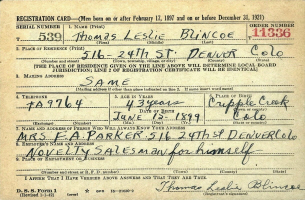 REGISTRATION CARD—(Men born on or after February 17, 1897 and on or before December 31, 1921)
SERIAL NUMBER 1. NAME (Print) ORDER NUMBER
539 Thomas Leslie Blincoe 11336
(First) (Middle) (Last)
2. PLACE OF RESIDENCE (Print)
516-24TH ST. DENVER COLO
(Number and street) (Town, township, village, or city) (County) (State)
[THE PLACE OF RESIDENCE GIVEN ON THE LINE ABOVE WILL DETERMINE LOCAL BOARD
JURISDICTION; LINE 2 OF REGISTRATION CERTIFICATE WILL BE IDENTICAL]
3. MAILING ADDRESS
SAME
4. TELEPHONE 5. AGE IN YEARS 6. PLACE OF BIRTH
TA9764 43 years Cripple Creek
DATE OF BIRTH
June 13 1899 Colo
(Mo.) (Day) (Yr.) (State or country)
7. NAME AND ADDRESS OF PERSON WHO WILL ALWAYS KNOW YOUR ADDRESS
MRS E.A. PARKER 516 24TH ST DENVER Colo
8. EMPLOYER'S NAME AND ADDRESS
NOVELTY SALESMAN for himself
9. PLACE OF EMPLOYMENT OR BUSINESS
(Number and street or R. F. D. number) (Town) (County) (State)
I AFFIRM THAT I HAVE VERIFIED ABOVE ANSWERS AND THAT THEY ARE TRUE.
D. S. S. Form 1
Thomas Leslie Blincoe